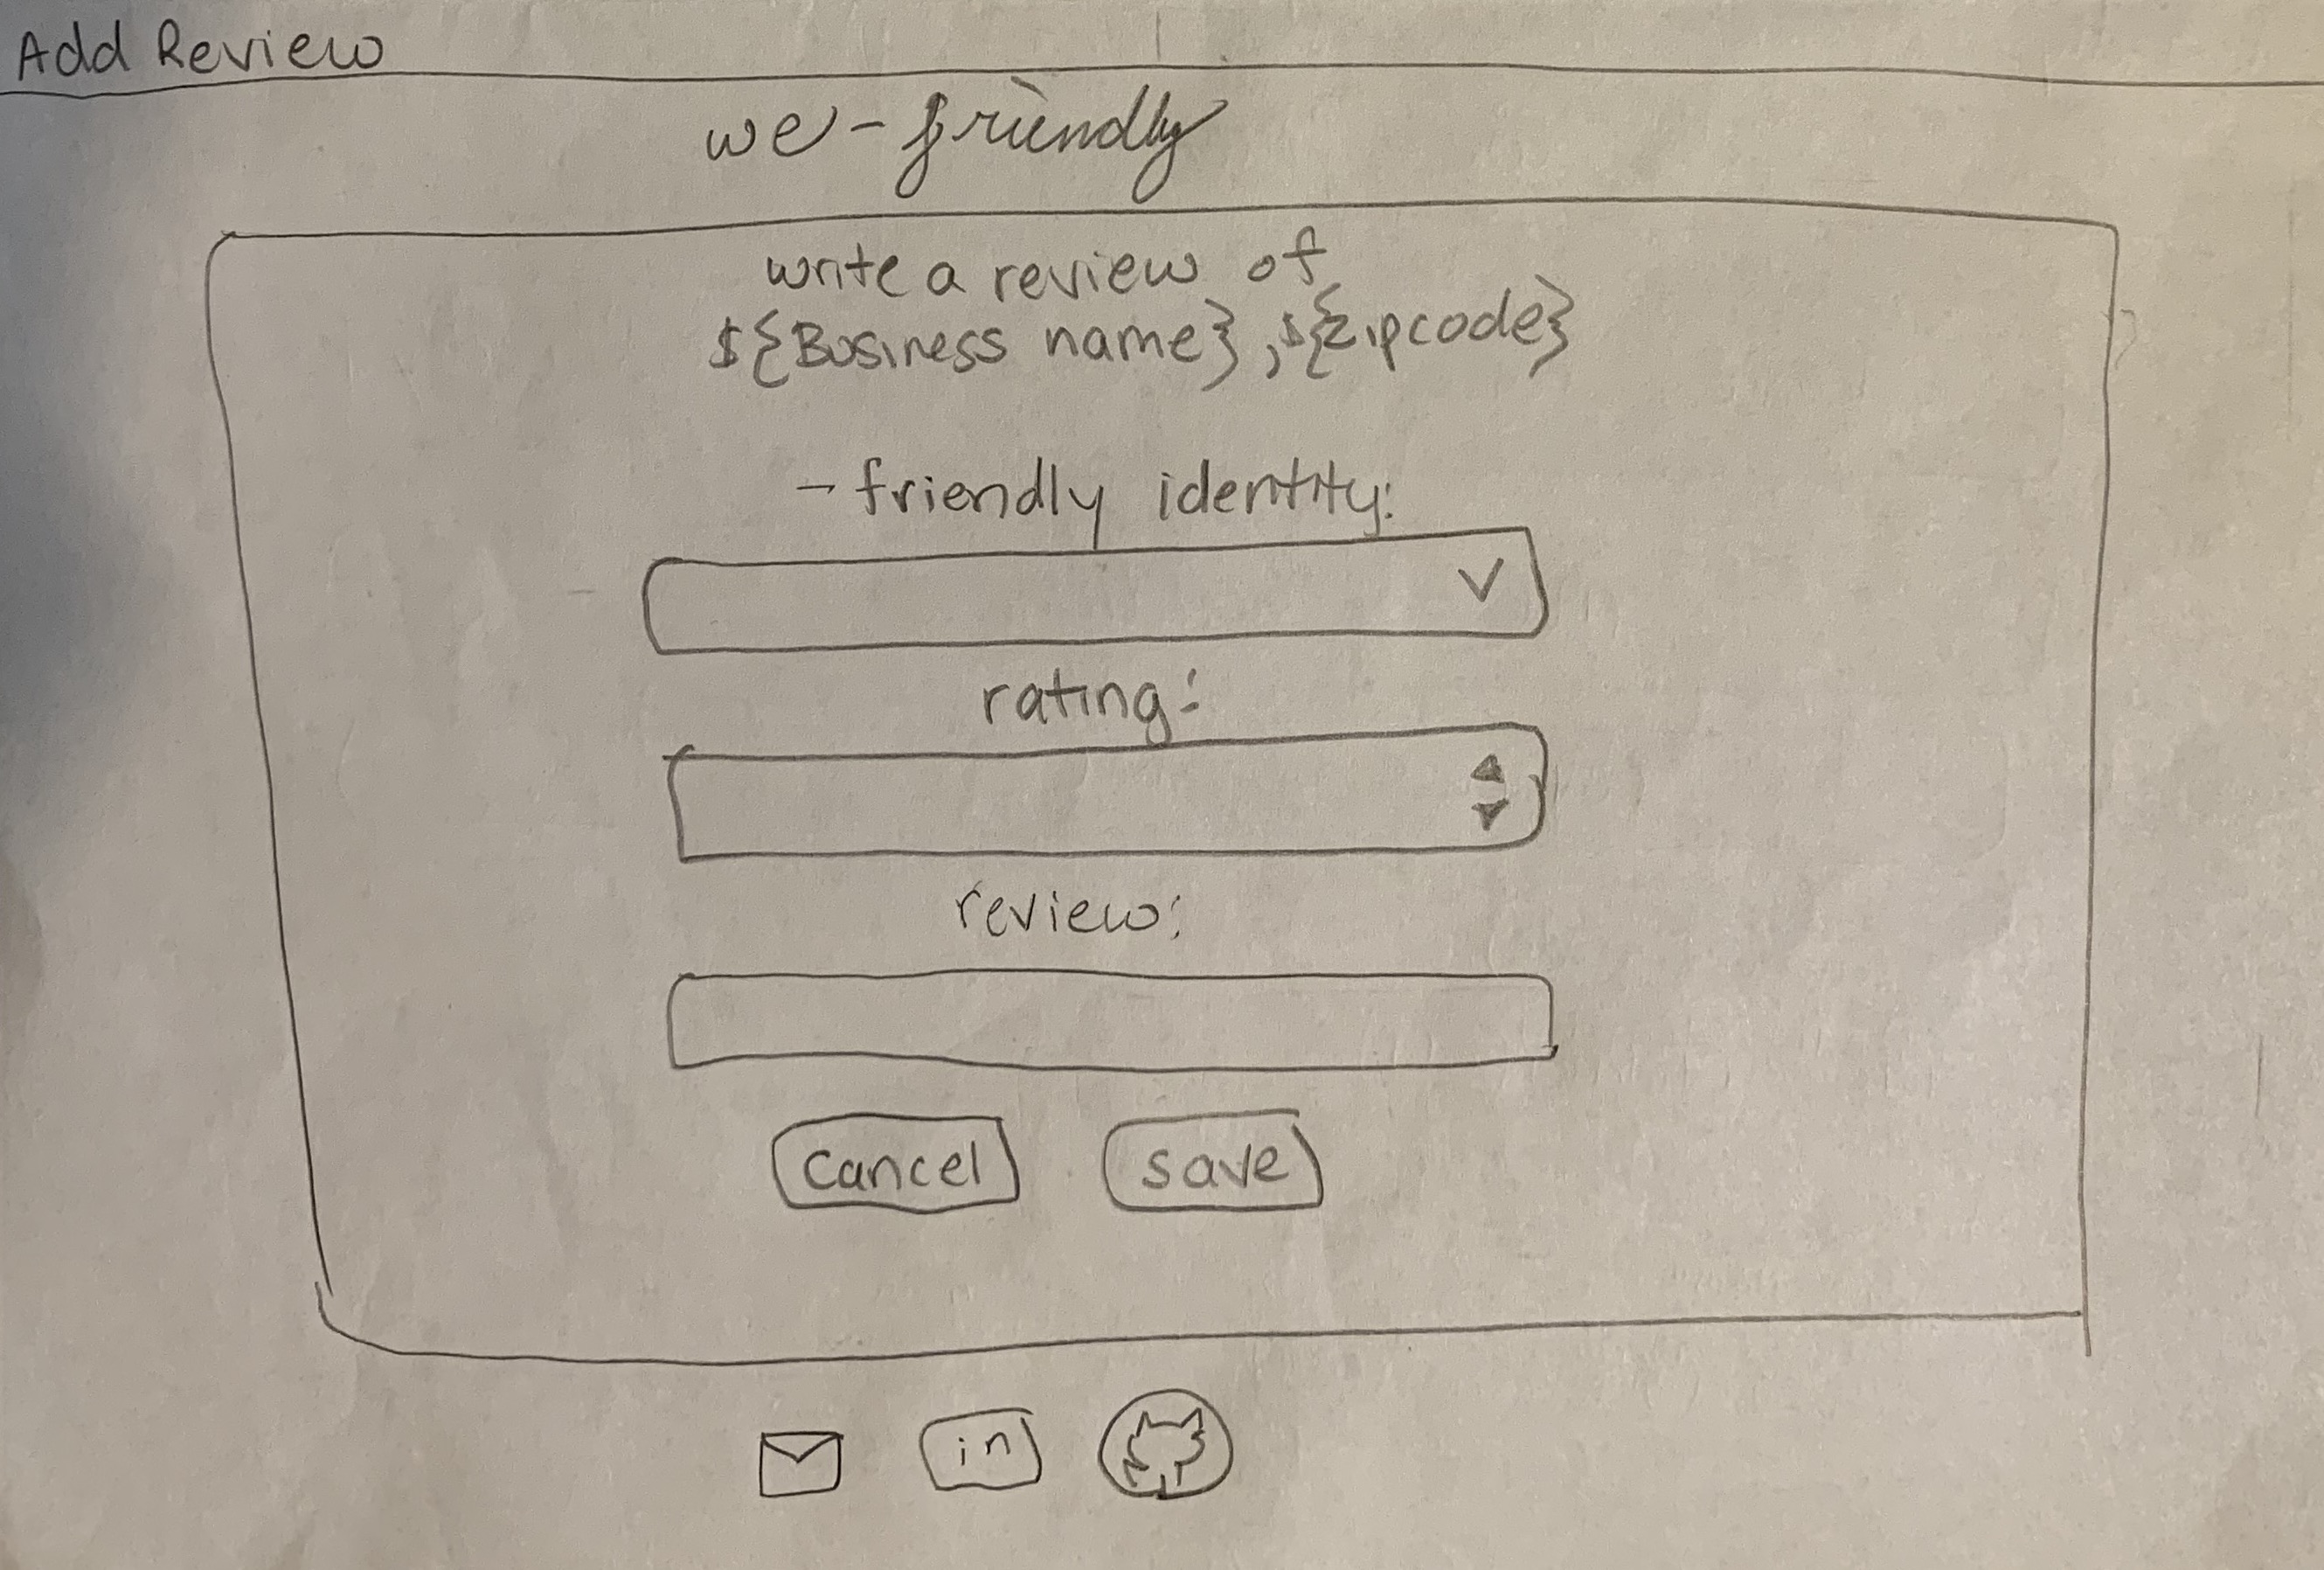 Add Review
we-friendly
write a review of
${Business name}, ${zipcode}
-friendly identity:
rating:
review:
cancel save
in